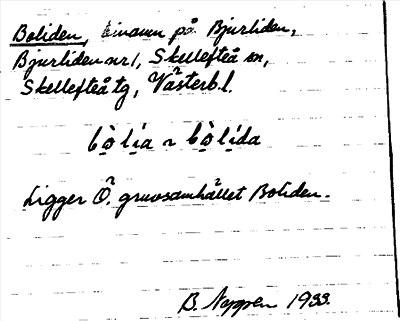 Boliden, binamn på Bjurliden,
Bjurliden nr 1, Skellefteå sn,
Skellefteå tg, Västerb. l.
bòlia ~ bòlida
Ligger Ö. gruvsamhället Boliden.
B. 1933.